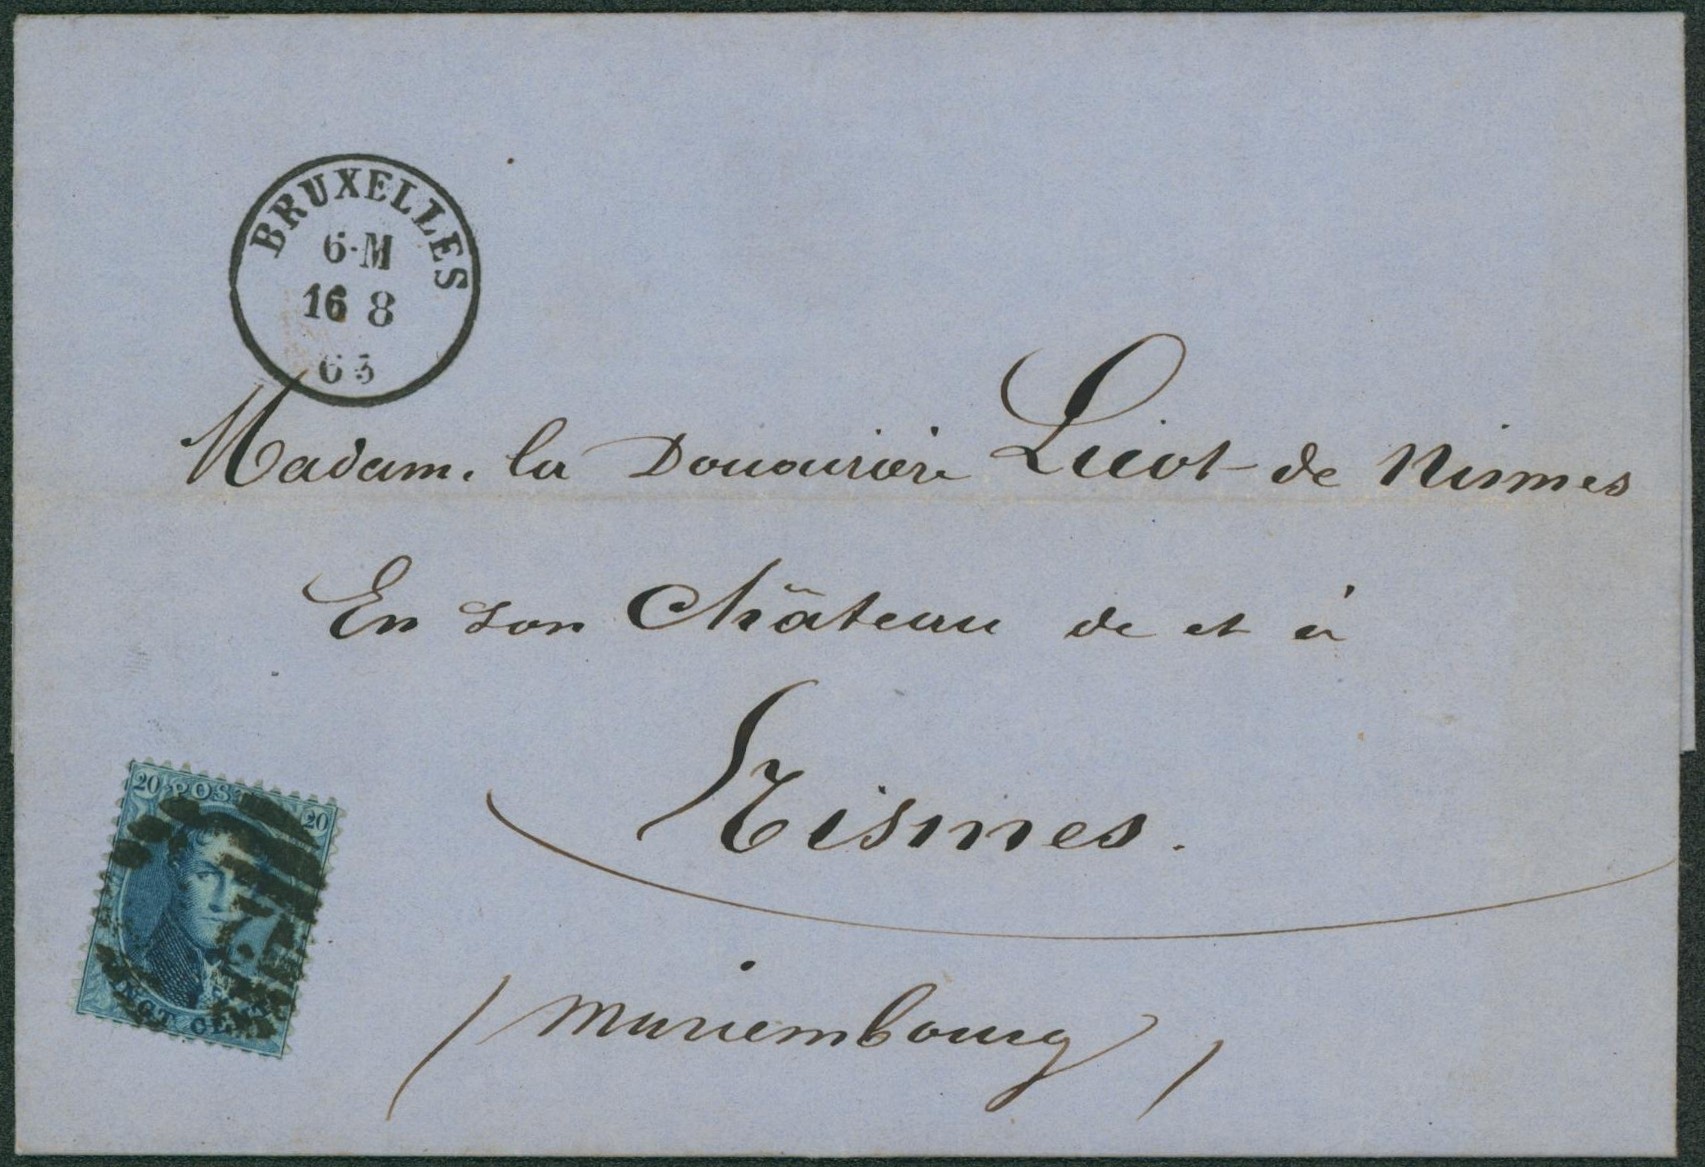 BRUXELLES
6-M
16 8
63
Madame la Douairière Licot de Nismes
En son Château de et à
Nismes.
(Mariembourg)
20 POSTES 20
VINGT CENT